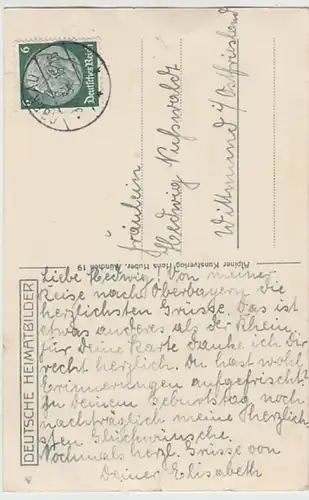 6
6
Deutsches Reich
Fräulein
Hedwig Nußwaldt
Wittmund i/Ostfriesland
Alpiner Kunstverlag Hans Huber, München 19
DEUTSCHE HEIMATBILDER
Liebe Hedwig! Von meiner
Reise nach Oberbayern die
herzlichsten Grüsse. Das ist
etwas anderes als der Rhein.
Für Deine Karte danke ich Dir
recht herzlich. Du hast wohl
Erinnerungen aufgefrischt?
Zu Deinem Geburtstag noch
nachträglich meine herzlich-
sten Glückwünsche.
Nochmals herzl. Grüsse von
Deiner Elisabeth